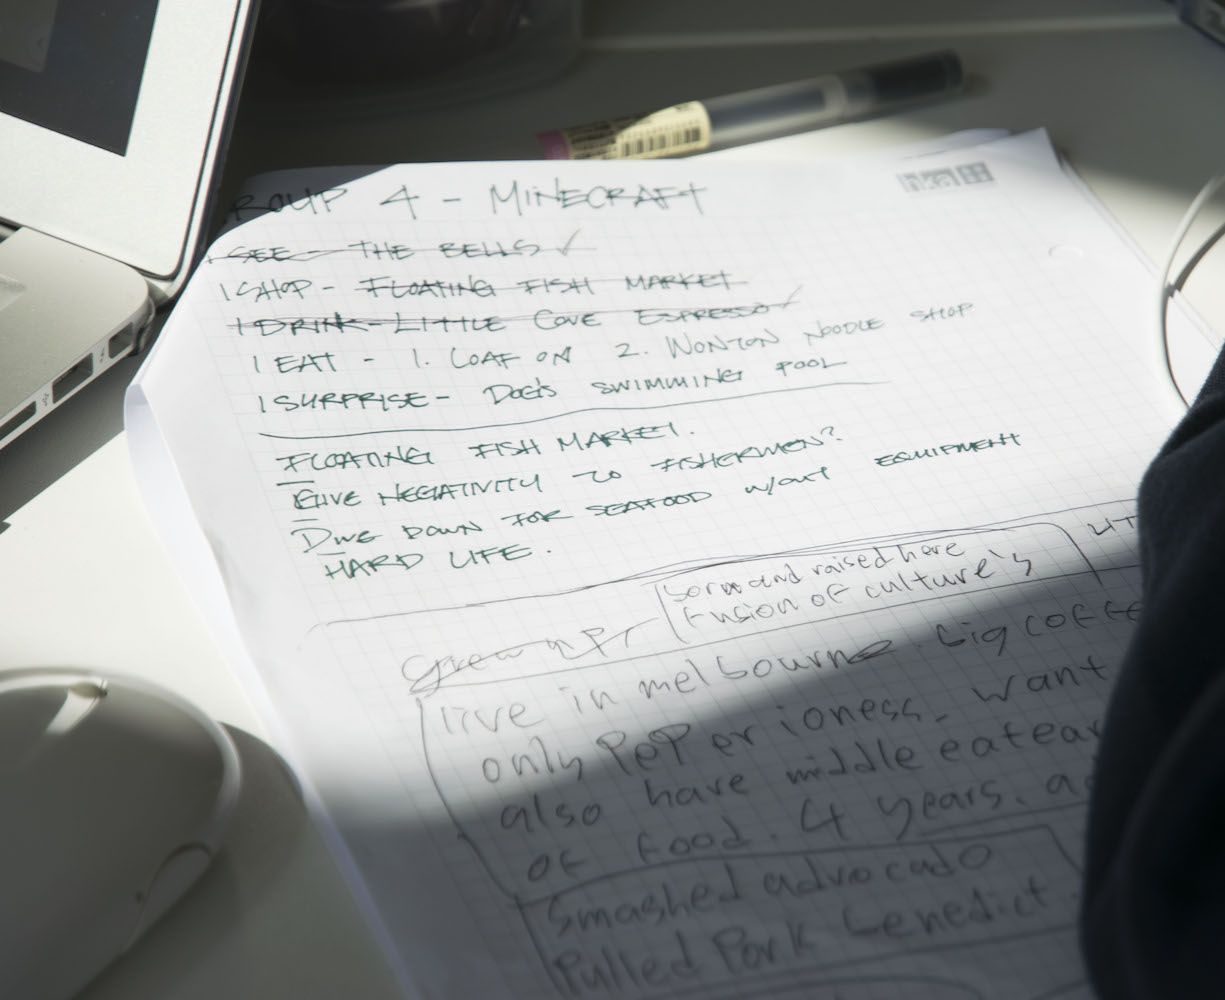 GROUP 4 - MINECRAFT
1 SEE - THE BELLS ✓
1 SHOP - FLOATING FISH MARKET
1 DRINK - LITTLE COVE ESPRESSO ✓
1 EAT - 1. LOAF ON 2. WONTON NOODLE SHOP
1 SURPRISE - DOG'S SWIMMING POOL
FLOATING FISH MARKET.
GIVE NEGATIVITY TO FISHERMEN?
DIVE DOWN FOR SEAFOOD W/OUT EQUIPMENT
HARD LIFE.
born and raised here
fusion of culture's
Grew up
live in melbourne. big coffe
only PePerioness, want
also have middle eatear
of food. 4 years.
Smashed advocado
Pulled Pork benedict.